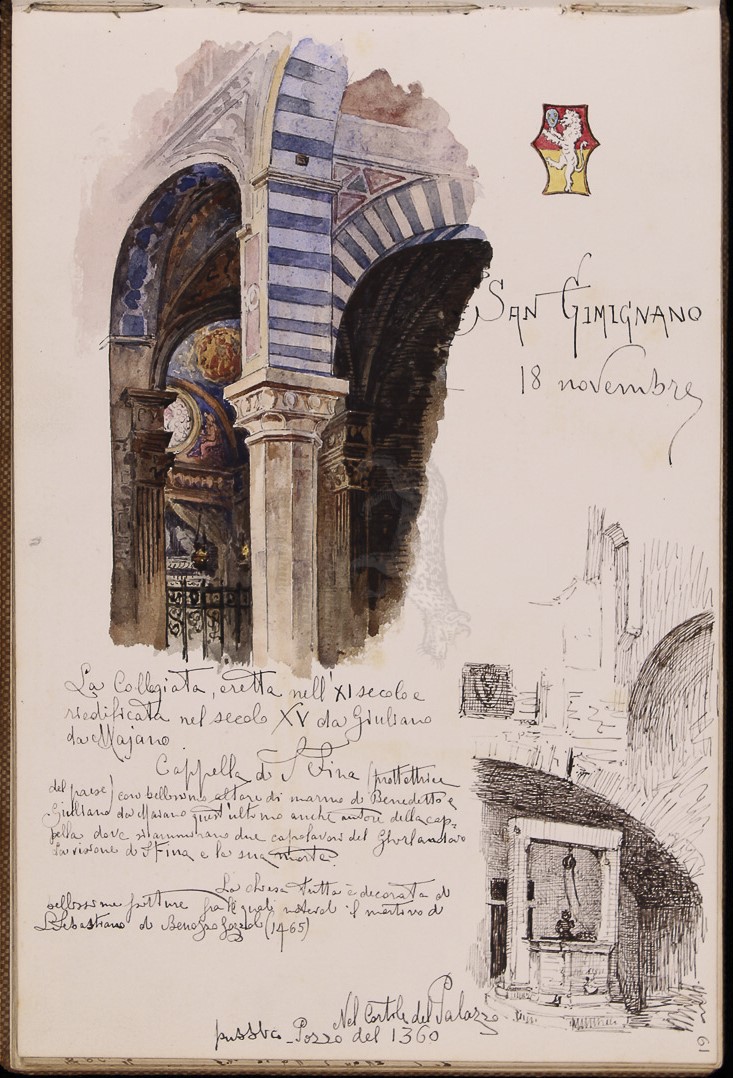 San Gimignano
18 novembre
La Collegiata, eretta nell'XI secolo e
riedificata nel secolo XV da Giuliano
da Majano
Cappella di S Fina (protettrice
del paese) con bellissimo altare di marmo di Benedetto e
Giuliano da Maiano quest'ultimo anche autore della cap-
pella dove si ammirano due capolavori del Ghirlandaio
La visione di S Fina e la sua morte.
La chiesa tutta è decorata di
bellissime pitture fra le quali notevole il martirio di
S. Sebastiano di Benozzo Gozzoli (1465)
Nel Cortile del Palazzo
pubblico - Pozzo del 1360
61